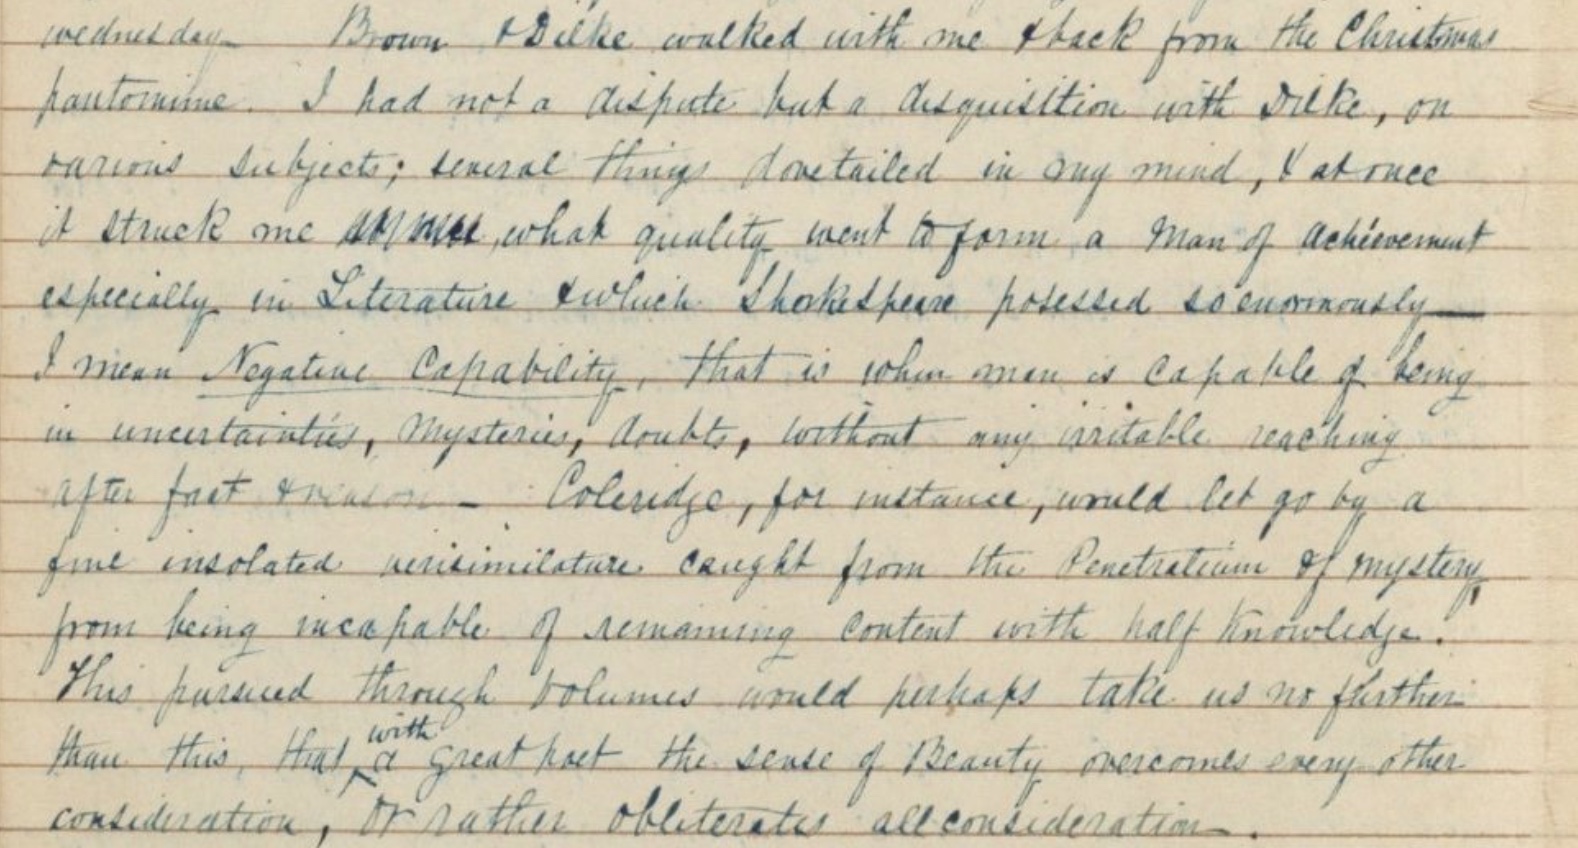 wednesday – Brown & Dilke walked with me & back from the Christmas
pantomime. I had not a dispute but a disquisition with Dilke, on
various subjects; several things dovetailed in my mind, & at once
it struck me , what quality went to form a Man of Achievement
especially in Literature & which Shakespeare posessed so enormously —
I mean Negative Capability, that is when man is capable of being
in uncertainties, Mysteries, doubts, without any irritable reaching
after fact & reason – Coleridge, for instance, would let go by a
fine insolated verisimilature caught from the Penetralium of mystery,
from being incapable of remaining Content with half knowledge.
This pursued through Volumes would perhaps take us no further
than this, that with a great poet the sense of Beauty overcomes every other
consideration, or rather obliterates all consideration.